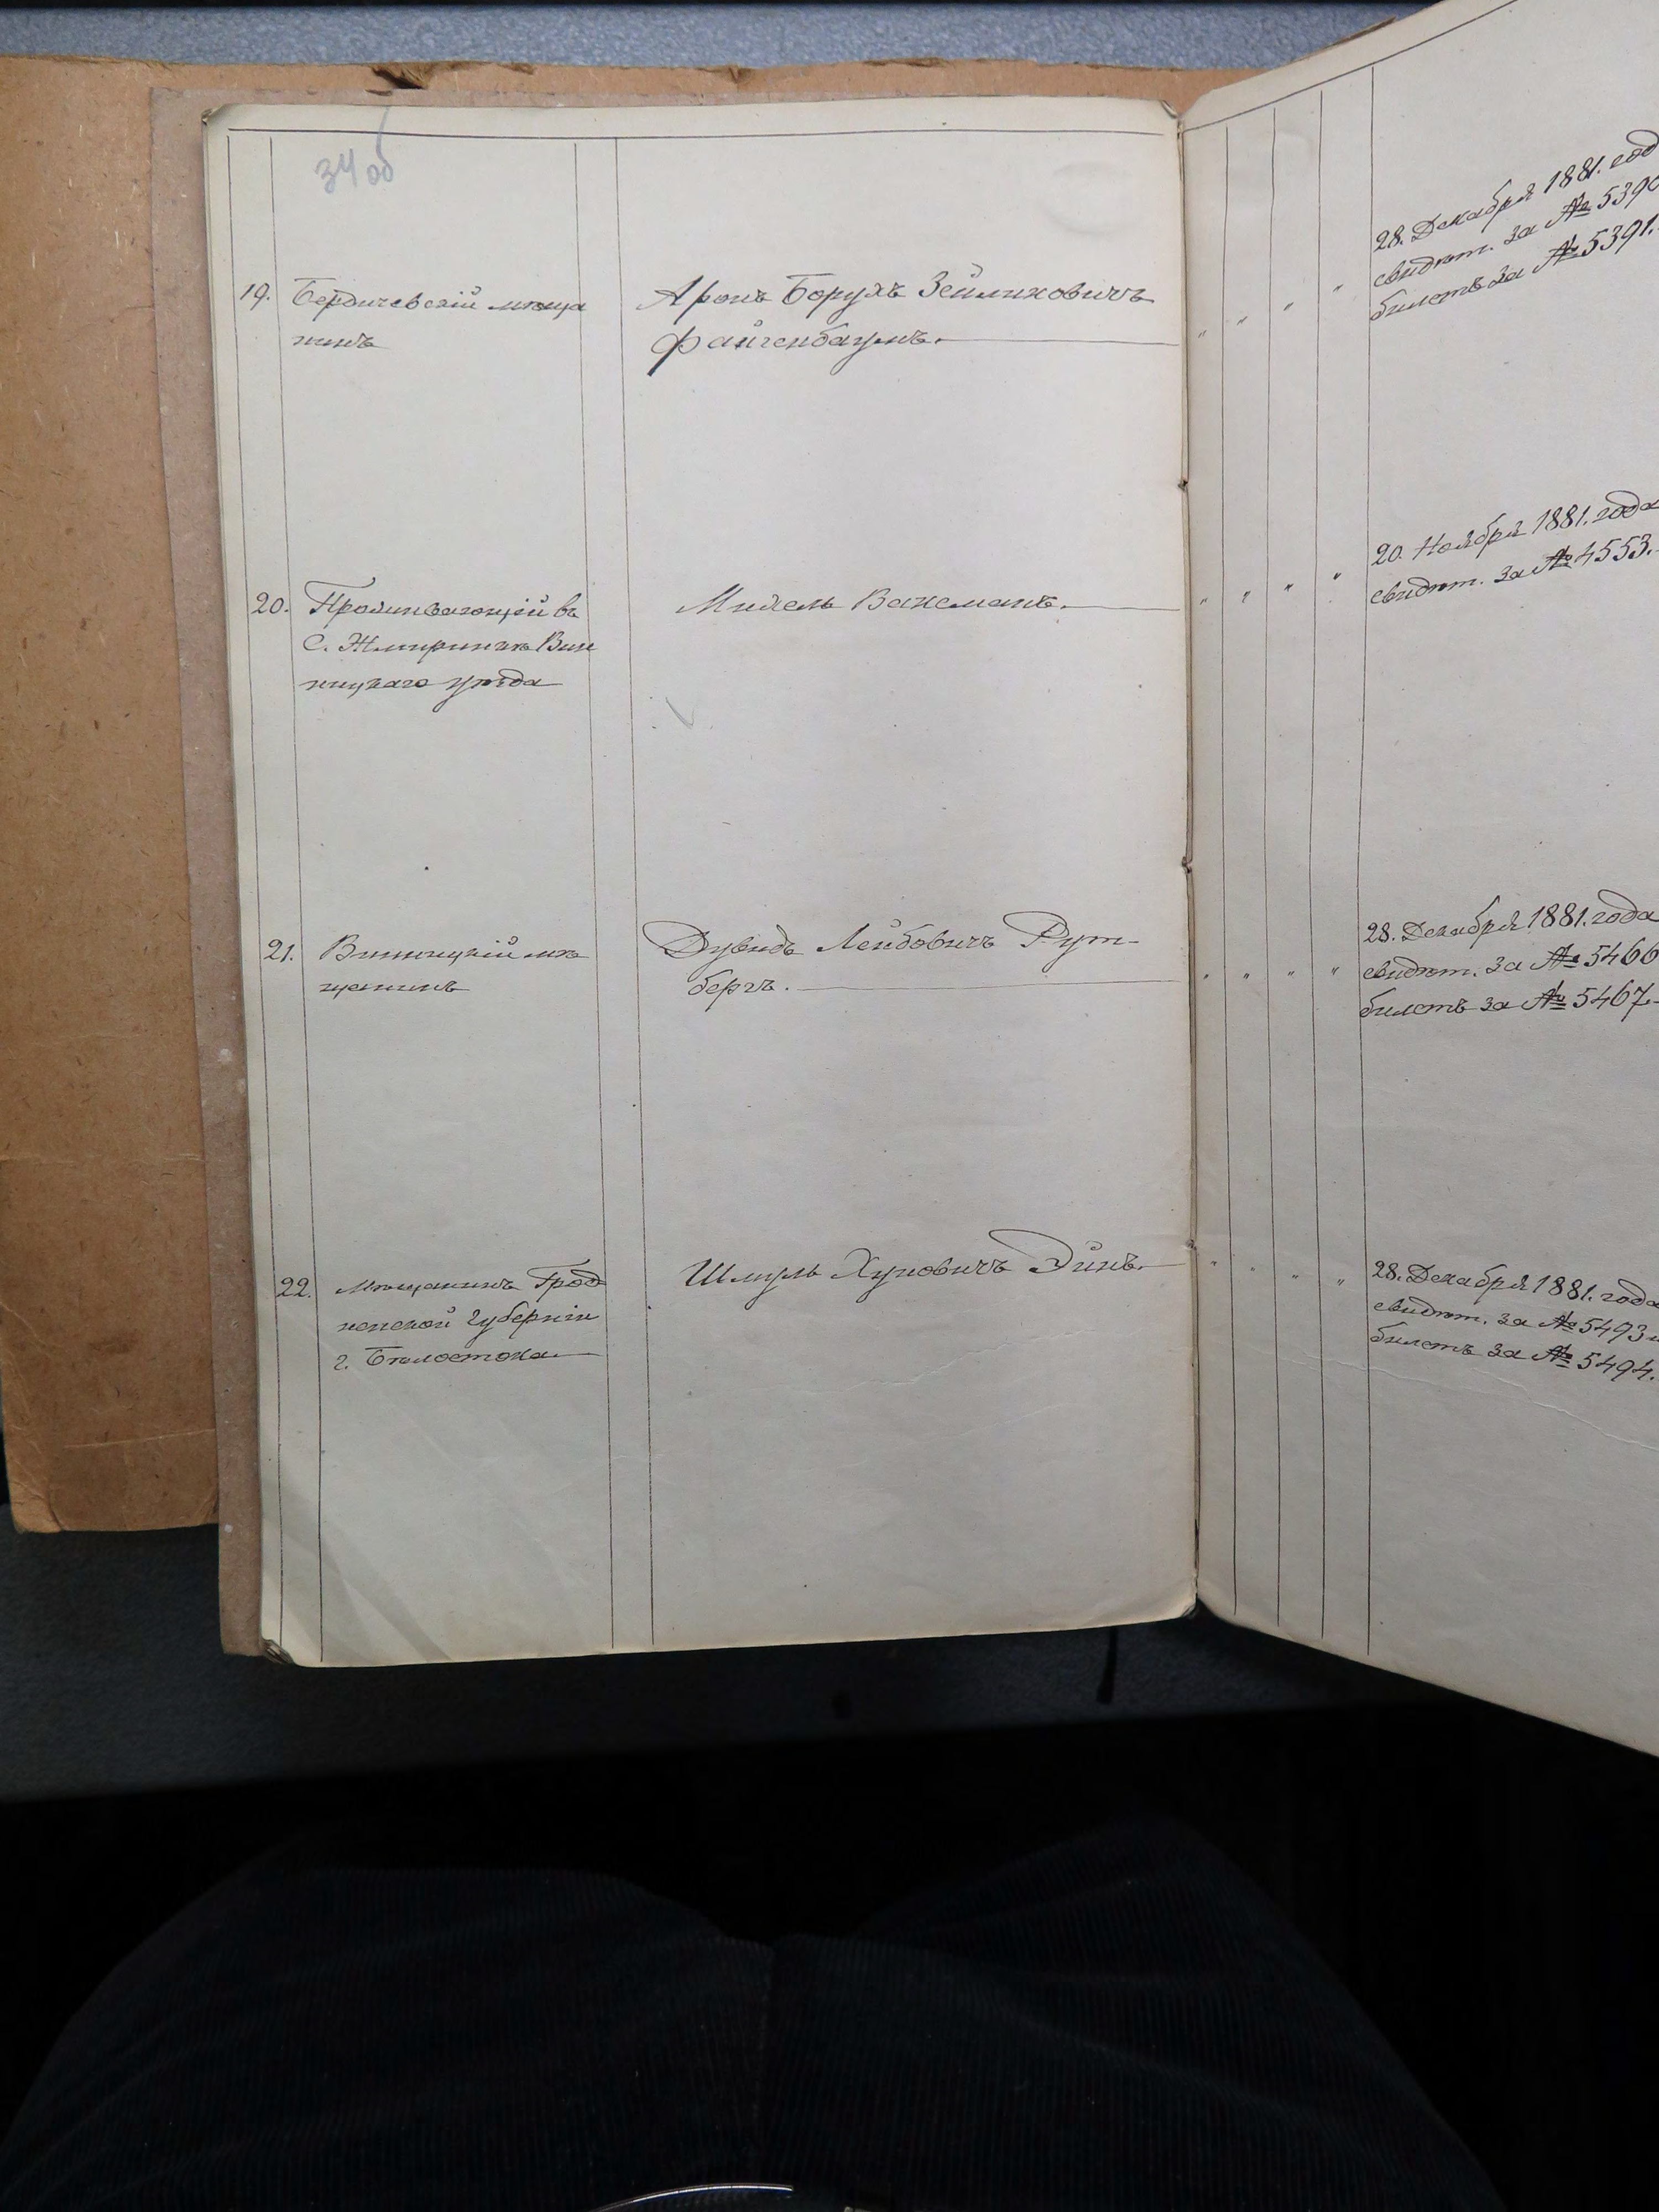 34 об
19. Бердичевскій мѣща
нинъ
Аронъ Борухъ Зейликовичъ
Файгенбаумъ.
" " " "
28. Декабря 1881. год
свидѣт. за № 5390
билетъ за № 5391.
20. Проживающій въ
С. Жмиринкѣ Вин
ницкаго уѣзда
" " " "
20. Ноября 1881. года
свидѣт. за № 4553.
21. Винницкій мѣ
щанинъ
Дувидъ Лейбовичъ Рут-
бергъ.
" " " "
28. Декабря 1881. года
свидѣт. за № 5466
билетъ за № 5467.
22. Мѣщанинъ Грод
ненской губерніи
г. Бѣлостока
Шмуль Хуновичъ Эйнъ.
" " " "
28. Декабря 1881. года
свидѣт. за № 5493 и
билетъ за № 5494.